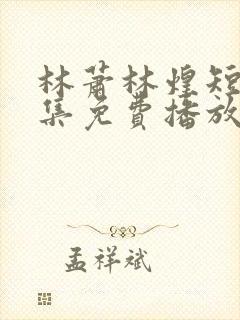 林萧林煌短
集免費播放
孟祥斌